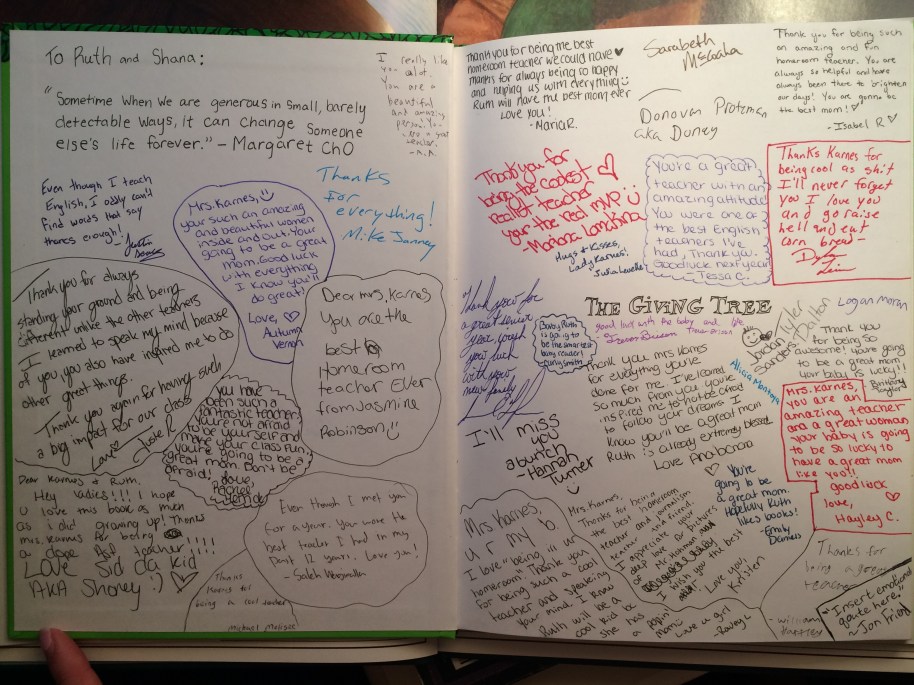 To Ruth and Shana:
"Sometime when we are generous in small, barely
detectable ways, it can change someone
else's life forever." - Margaret Cho
I really like
you alot.
You are a
beautiful
and amazing
person. You
are a great
teacher.
- A.A.
Even though I teach
English, I can't
find words that say
thanks enough!
Mrs. Karnes,
your such an amazing
and beautiful women
inside and out. Your
going to be a great
mom. Good luck
with everything
I know you'll
do great!
Love,
Autumn
Vernon
Thanks
for
everything!
Mike Janney
Thank you for always
standing your ground and being
different unlike the other teachers
I learned to speak my mind because
of you you also have inspired me to do
other great things.
Thank you again for having such
a big impact for our class
Love
Dear Mrs. Karnes
You are the
best
Homeroom
teacher Ever
from Jasmine
Robinson
You have
been such a
fantastic teacher
you're not afraid
to be yourself and
make your class fun.
you're going to be a
great mom. Don't be
afraid! love,
Dear Karnes & Ruth,
Hey ladies!!!! I hope
u love this book as much
as i did growing up! Thanks
mrs. Karnes for being
a dope AF teacher!!!!
Love Sid da kid
AKA Shoney :)
Even though I met you
for a year. You were the
best teacher I had in my
past 12 years. Love ya!
- Saleh
Thanks
Karnes for
being a cool teacher
Thank you for being the best
homeroom teacher we could have
thanks for always being so happy
and helping us with everything
Ruth will have the best mom ever
Love you!
- Maria R.
Sarabeth
Donovan Protzman
aka Doney
Thank you for being such
an amazing and fun
homeroom teacher. You are
always so helpful and have
always been there to brighten
our days! You are gonna be
the best mom!
- Isabel R
Thank you for
being the coolest
realest teacher
your the real MVP
Hugs & Kisses,
Lady Karnes!
You're a great
teacher with an
amazing attitude
You were one of
the best English
teachers I've
had, Thank you.
Good luck next year
- Tessa C.
Thanks Karnes for
being cool as shit
I'll never forget
you I love you
and go raise
hell and eat
corn bread -
Thank you for
a great senior
year, good
luck
with your
new family
Baby Ruth
is going to
be the smartest
baby reader!
THE GIVING TREE
good luck with the baby and life
Thank you mrs Karnes
for everything you've
done for me. I've learned
so much from you. you've
inspired me to not be afraid
to follow your dreams I
know you'll be a great mom
Ruth is already extremely blessed
Love Anabcnora
Alicia Montoya
Jordan Tyler
Sanders
Dalton
Logan Moran
Thank you
for being so
awesome! you're going
to be a great mom
your baby is lucky!!
Mrs. Karnes,
you are an
amazing teacher
and a great woman
your baby is going
to be so lucky to
have a great mom
like you!!
good luck
love,
Hayley C.
I'll miss
you
a bunch
- Hannah
Turner
You're
going to be
a great mom.
Hopefully Ruth
likes books!
- Emily
Mrs Karnes,
u r my b
I love "being in ur
homeroom." Thank you
for being such a cool
teacher and speaking
your mind. I know
Ruth will be a
cool kid bc
she has a
poppin'
mom
Love a girl
- Bailey L
Mrs. Karnes,
Thanks for being
the best homeroom
teacher and journalism
teacher and friend
I appreciate your
dead love for pictures
of Mr. Hohman
I wish you the best
Love you
Kristen
Thanks for
being a great
teacher
- william
"Insert emotional
quote here."
~ Jon Friday